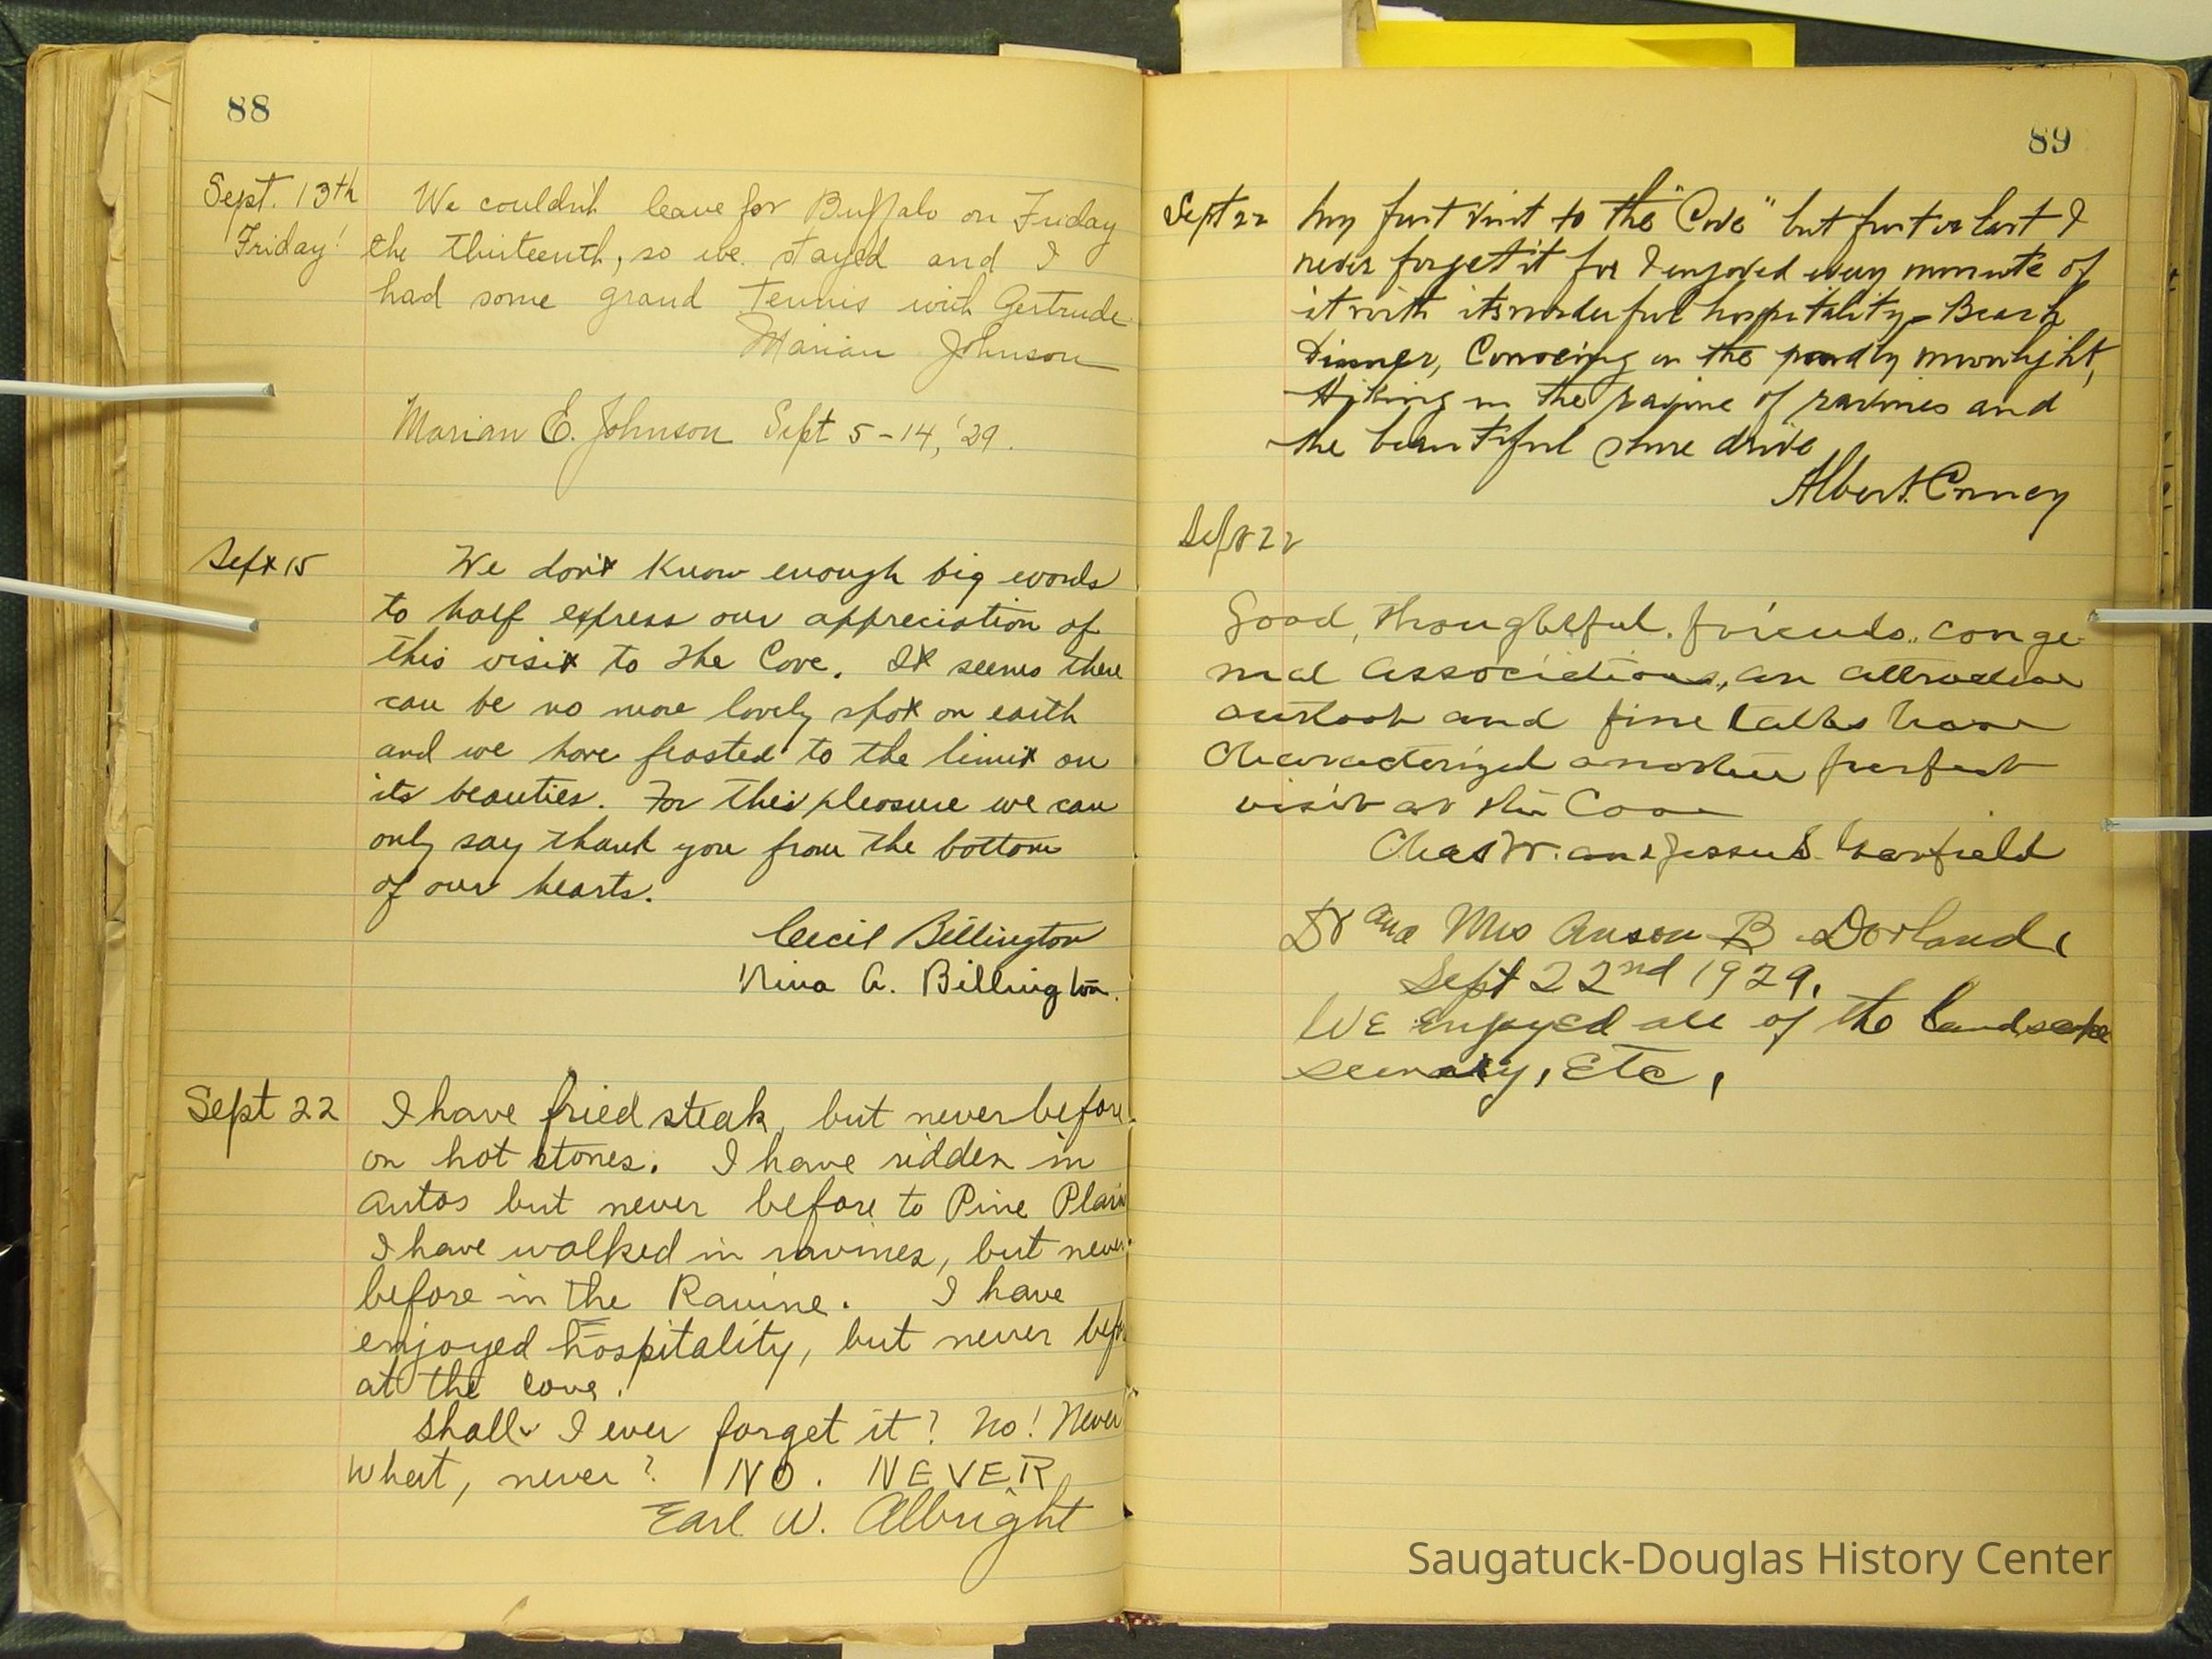 88
Sept. 13th We couldn't leave for Buffalo on Friday
Friday! the thirteenth, so we stayed and I
had some grand tennis with Gertrude
Marian Johnson
Marian E. Johnson Sept 5-14, '29.
Sept 15 We don't know enough big words
to half express our appreciation of
this visit to the Cove. It seems there
can be no more lovely spot on earth
and we have feasted to the limit on
its beauties. For this pleasure we can
only say thank you from the bottom
of our hearts.
Cecil Billington
Nina A. Billington.
Sept 22 I have fried steak, but never before
on hot stones. I have ridden in
autos but never before to Pine Plain
I have walked in ravines, but never
before in the Ravine. I have
enjoyed hospitality, but never bef
at the cove.
Shall I ever forget it? No! Never
What, never? NO. NEVER
Earl W. Albright
89
Sept 22 My first visit to the "Cove" but first or last I
never forget it for I enjoyed every minute of
it with its wonderful hospitality - Beach
Dinner, Canoeing in the moonlight,
Hiking in the ravine of ravines and
the beautiful shore drive
Albert
Sept 22
Good, thoughtful, friends, conge-
nial associations, an attractive
outlook and fine talks have
characterized another perfect
visit at the Cove
Chas W. and Jessie S. Garfield
Dr and Mrs Anson B Dorland,
Sept 22nd 1929.
We Enjoyed all of the landscape
scenery, Etc,
Saugatuck-Douglas History Center